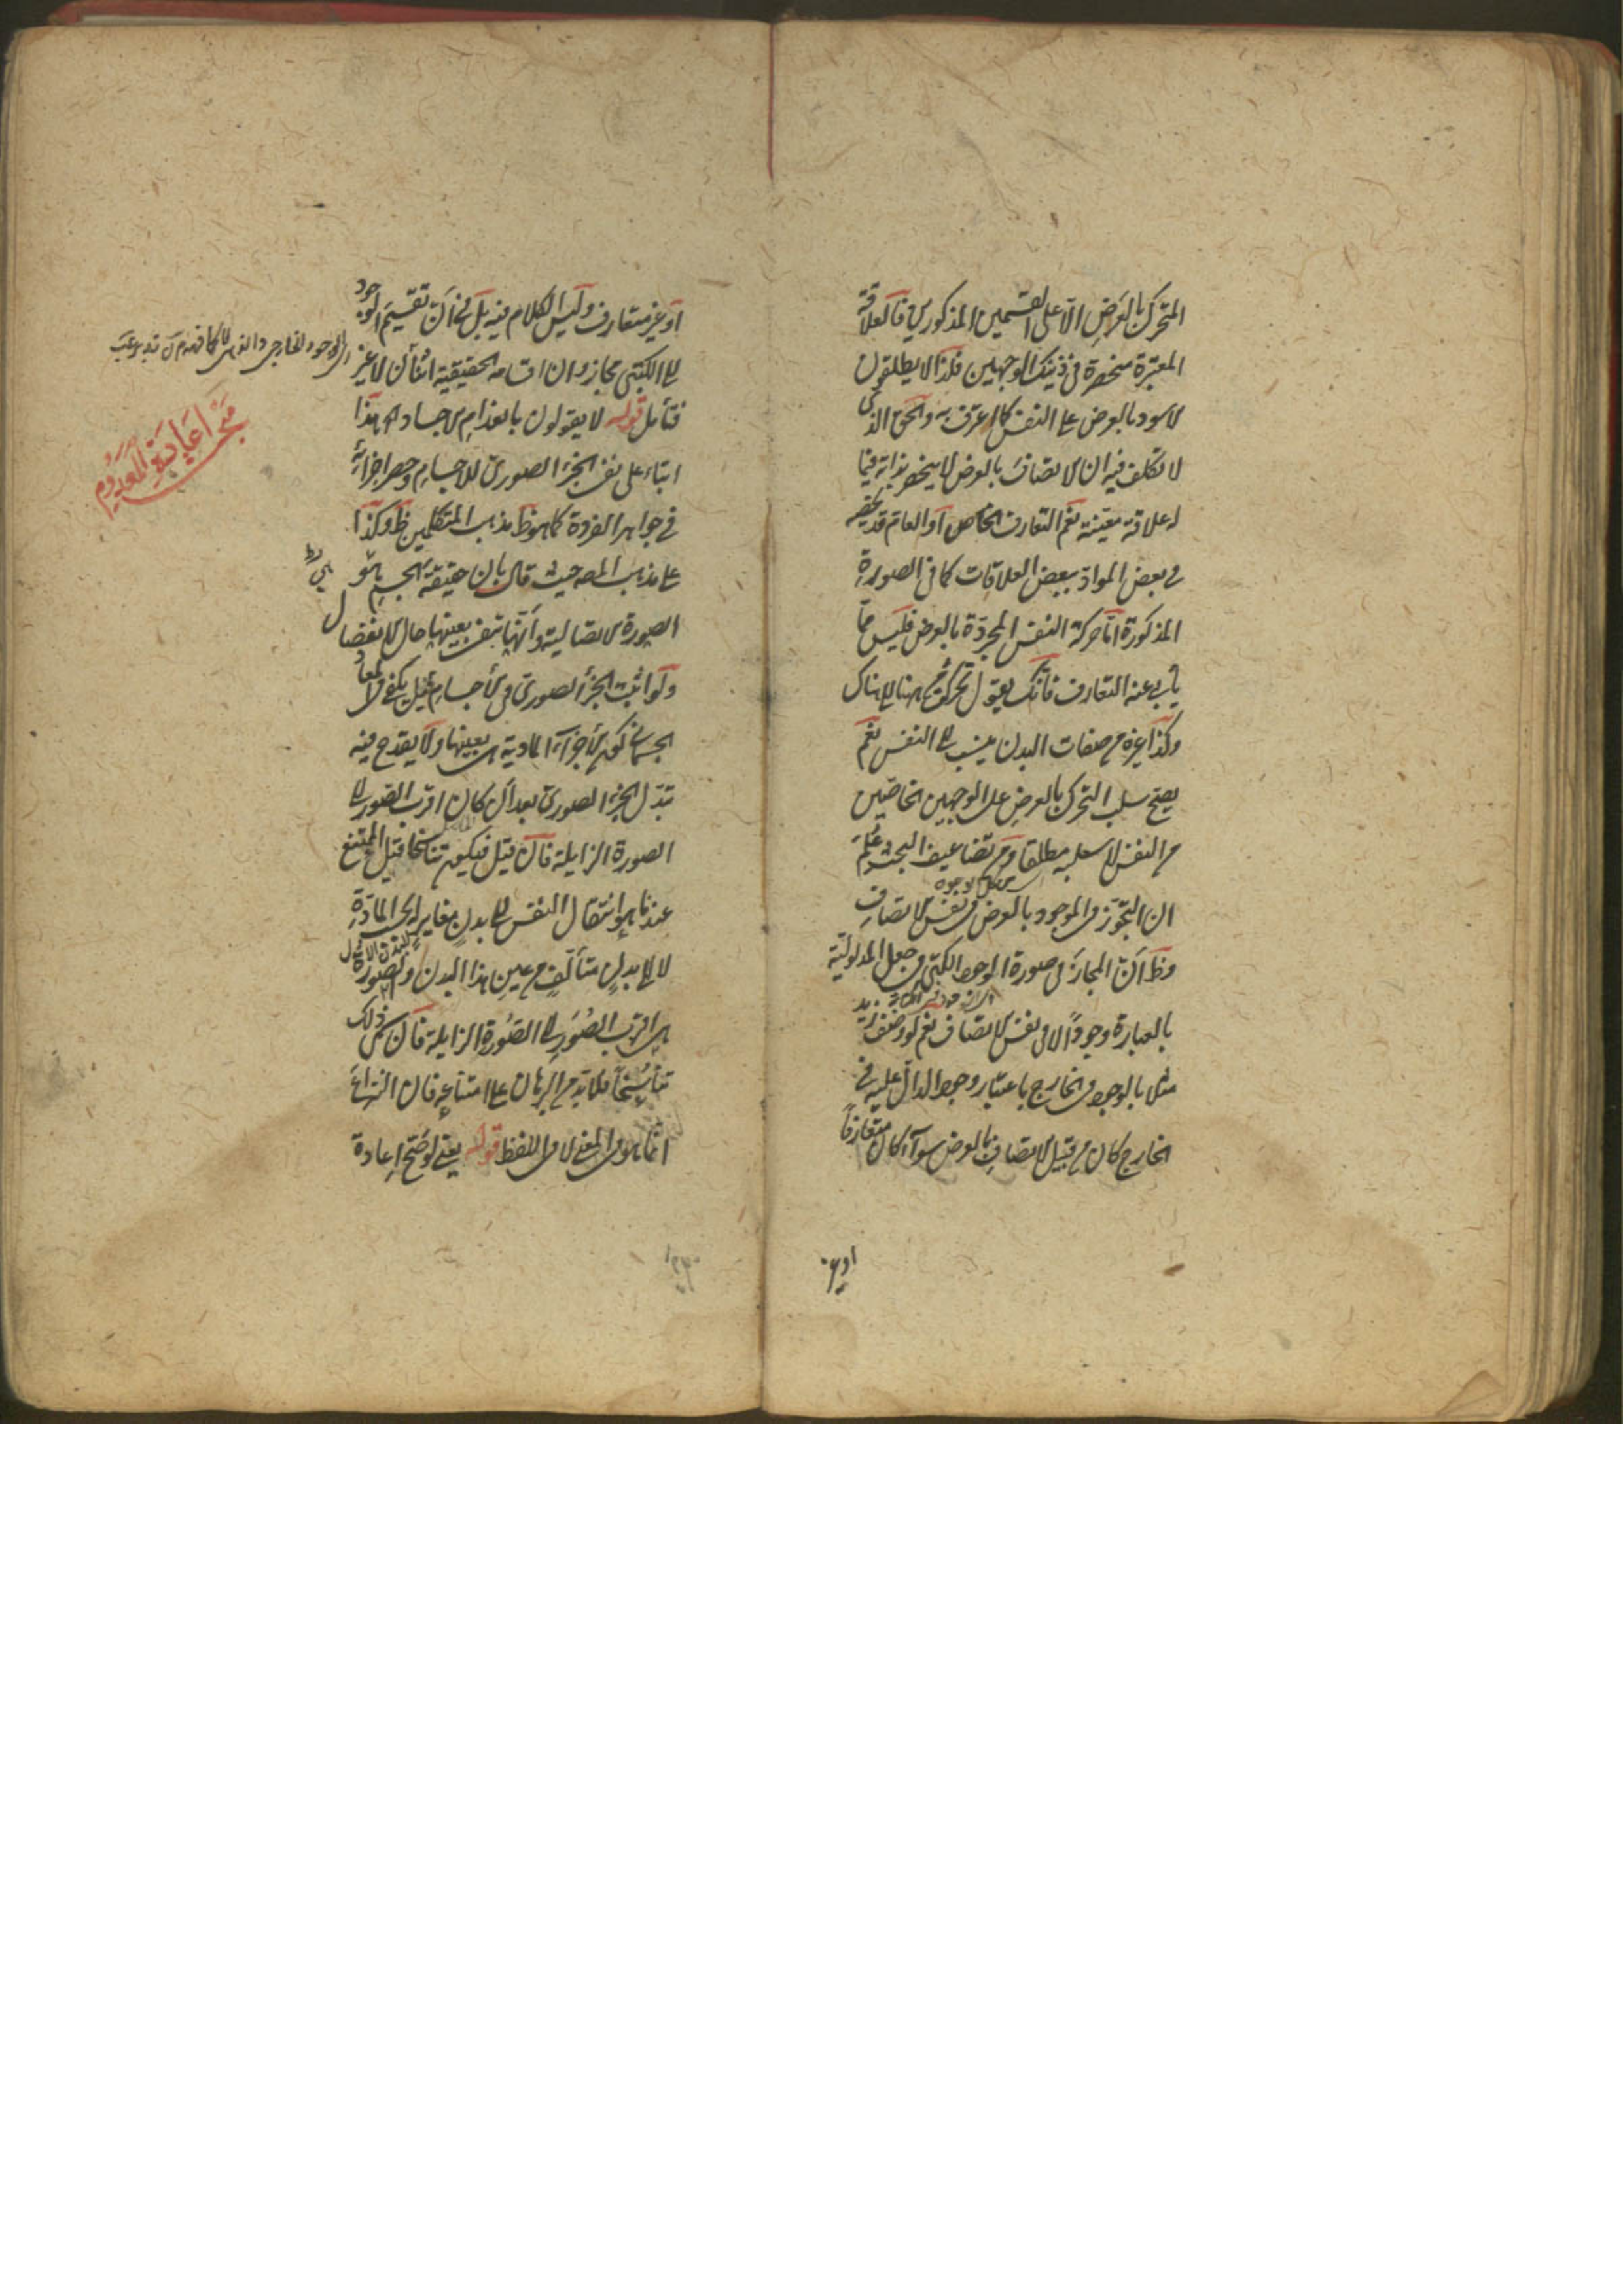 المتحرك بالعرض الا على القسمين المذكورين فالعلاقة
المعتبرة منحصرة في ذينك الوجهين فلذا لا يطلقون
الاسود بالعرض على النفس كما عرفت به والحق الذي
لا تكلف فيه ان الاتصاف بالعرض لا ينحصر بذاته فيما
له علاقة معينة نعم التعارف الخاص او العام قد يخصه
في بعض المواد ببعض العلاقات كما في الصورة
المذكورة اما حركة النفس المجردة بالعرض فليس مما
يأبى عنه التعارف فانك يقول تحركت من هنا الى هناك
وكذا غيره من صفات البدن ينسب الى النفس نعم
يصح سلب التحرك بالعرض على الوجهين الخاصين
من النفس لا سلبه مطلقا ومن تضاعيف البحث علم
ان التجوز في الموجود بالعرض في نفس الاتصاف
وظ ان المجاز في صورة الوجود الكتبي في جعل المدلولية
بالعبارة وجودا لا في نفس الاتصاف نعم لو وصف زيد
مثلا بالوجود في الخارج باعتبار وجود الدال عليه في
الخارج كان من قبيل الاتصاف بالعرض سواء كان متعارفا
او غير متعارف وليس الكلام فيه بل في ان تقسيم الوجود
الى الكتبي مجاز وان اقسامه الحقيقية اثنان لا غير
فتأمل قوله لا يقولون بانعدام الاجساد اه هذا
ابتناء على نفي الجزء الصوري للاجسام وحصر اجزائه
في جواهر الفردة كما هو ظ مذهب المتكلمين ظ وكذا
على مذهب المص حيث قال بان حقيقة الجسم هو
الصورة الاتصالية وانها تبقى بعينها حال الانفصال
ولو اثبت الجزء الصوري في الاجسام قيل يكفي في المعاد
الجسماني كون الاجزاء المادية هي بعينها ولا يقدح فيه
تبدل الجزء الصوري بعد ان كان اقرب الصور الى
الصورة الزايلة فان قيل فيكون تناسخا قيل الممتنع
عندنا هو انتقال النفس الى بدن مغاير له بحسب المادة
لا الى بدن متألف من عين هذا البدن وصورة
هي اقرب الصور الى الصورة الزايلة فان سمي ذلك
تناسخا فلا بد من البرهان على امتناعه فان النزاع
انما هو في المعنى لا في اللفظ قوله يعني لو صح اعادة
الى الوجود الخارجي والذهني
اعادة المعدوم